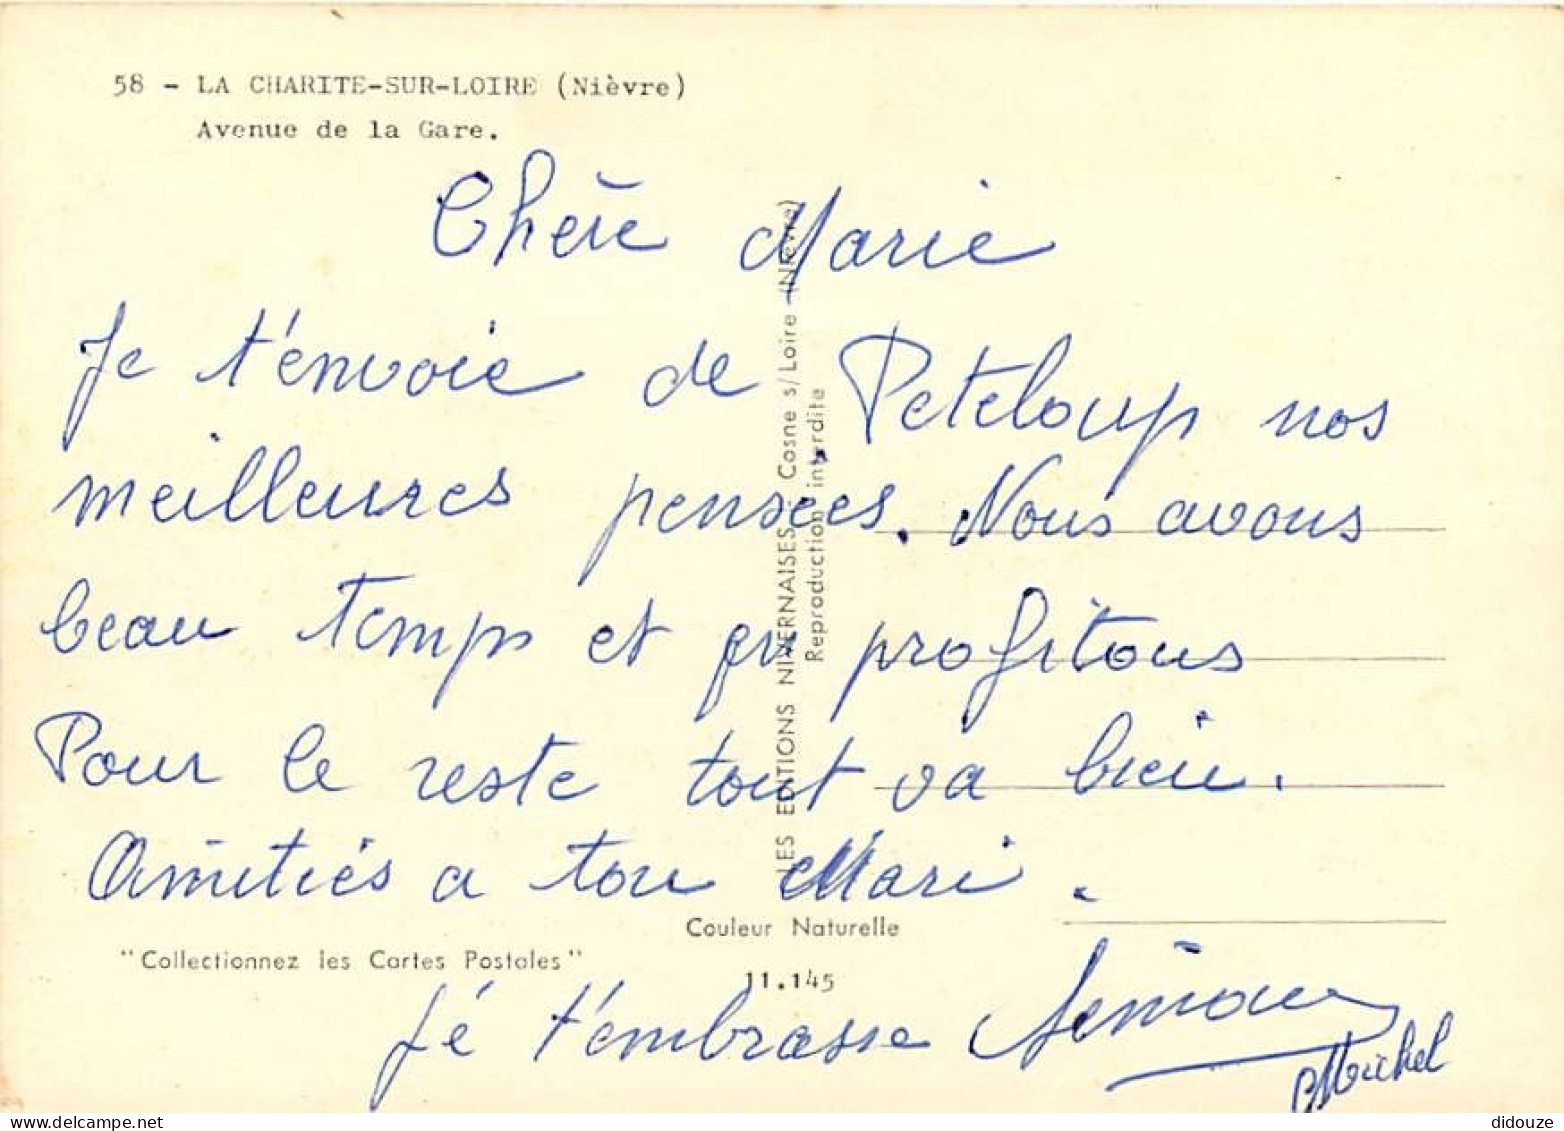 58 - LA CHARITE-SUR-LOIRE (Nièvre)
Avenue de la Gare.
Chère Marie
Je t'envoie de Peteloup nos
meilleures pensées. Nous avons
beau temps et en profitons
Pour le reste tout va bien.
Amitiés a ton Mari.
Couleur Naturelle
"Collectionnez les Cartes Postales"
11.145
Je t'embrasse
Michel
LES EDITIONS NIVERNAISES - Cosne s/Loire - (Nièvre)
Reproduction interdite
delcampe.net
didouze